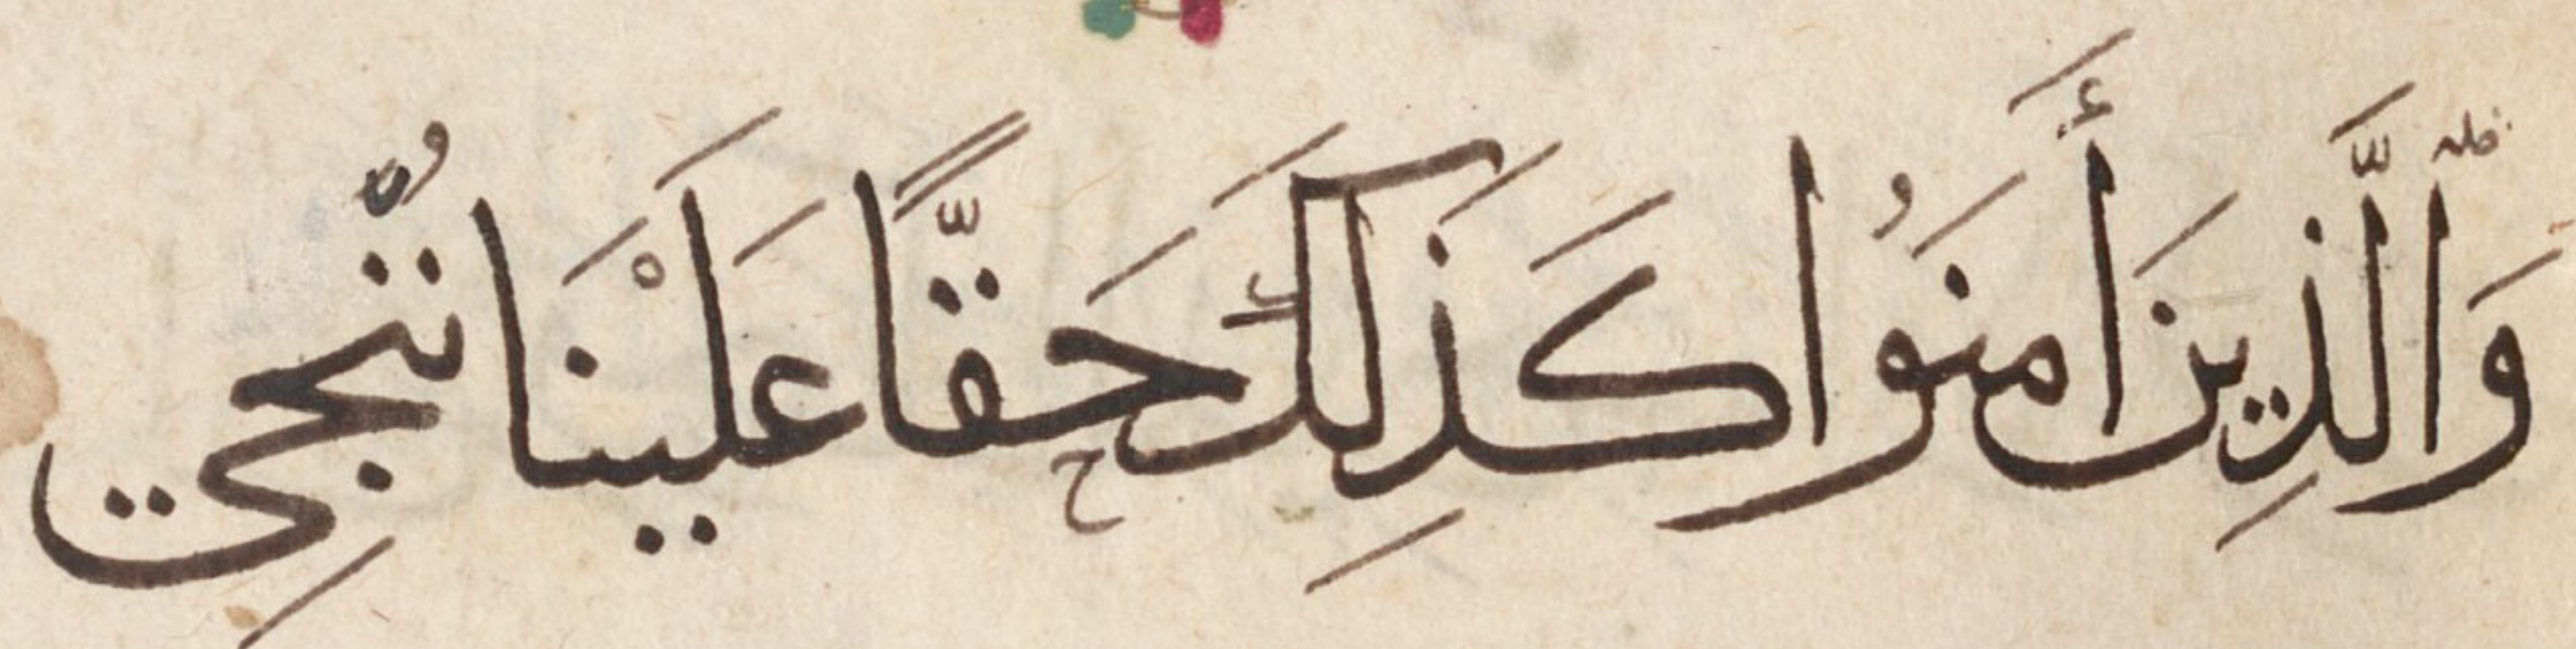 وَالَّذِينَ أَمَنُوا كَذَلِكَ حَقًّا عَلَيْنَا نُنْجِي